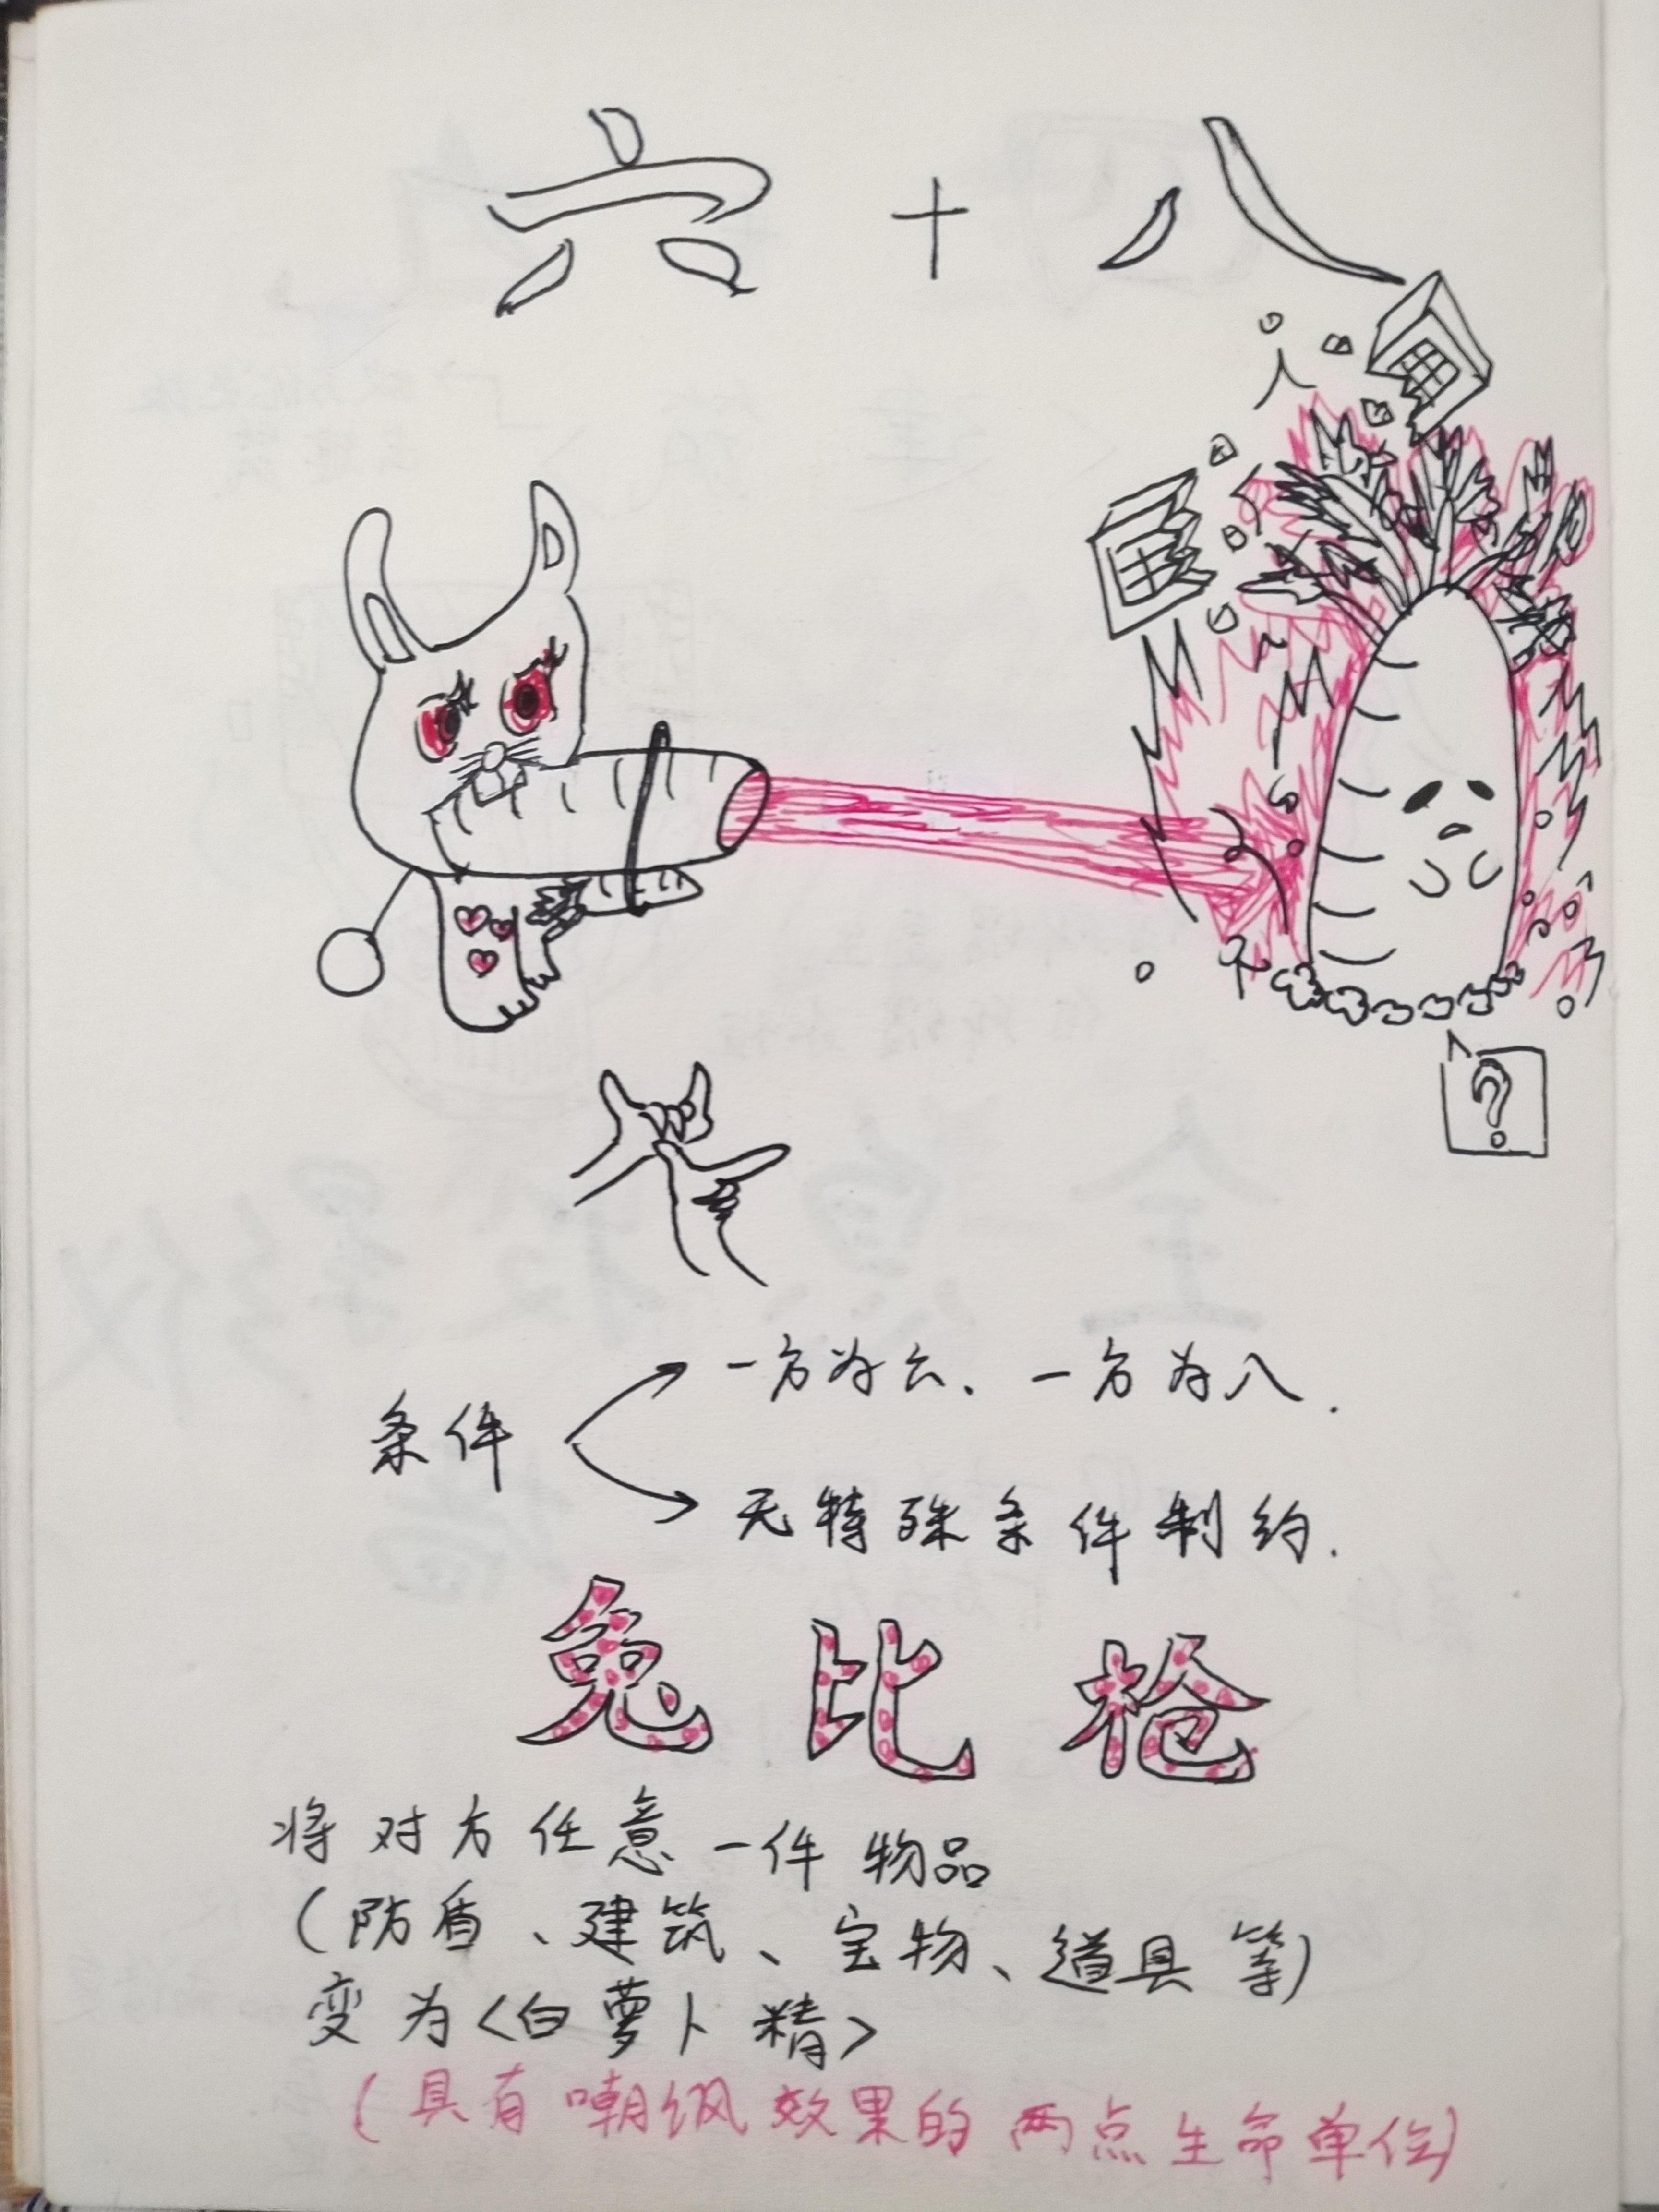 六 + 八
?
条件
一方为六、一方为八.
无特殊条件制约.
兔比枪
将对方任意一件物品
(防盾、建筑、宝物、道具等)
变为<白萝卜精>
(具有嘲讽效果的两点生命单位)